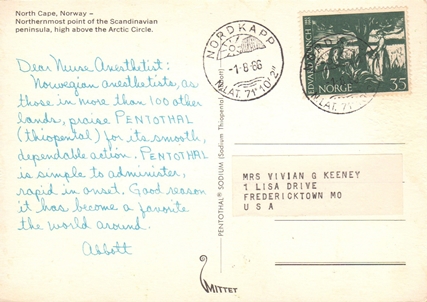 North Cape, Norway –
Northernmost point of the Scandinavian
peninsula, high above the Arctic Circle.
Dear Nurse Anesthetist:
Norwegian anesthetists, as
those in more than 100 other
lands, praise PENTOTHAL
(thiopental) for its smooth,
dependable action. PENTOTHAL
is simple to administer,
rapid in onset. Good reason
it has become a favorite
the world around.
Abbott
PENTOTHAL® SODIUM (Sodium Thiopental, Abbott)
MITTET
NORDKAPP
-1-8-66
LAT. 71°10'2"
EDVARD MUNCH
NORGE 35
LAT. 71°
MRS VIVIAN G KEENEY
1 LISA DRIVE
FREDERICKTOWN MO
U S A